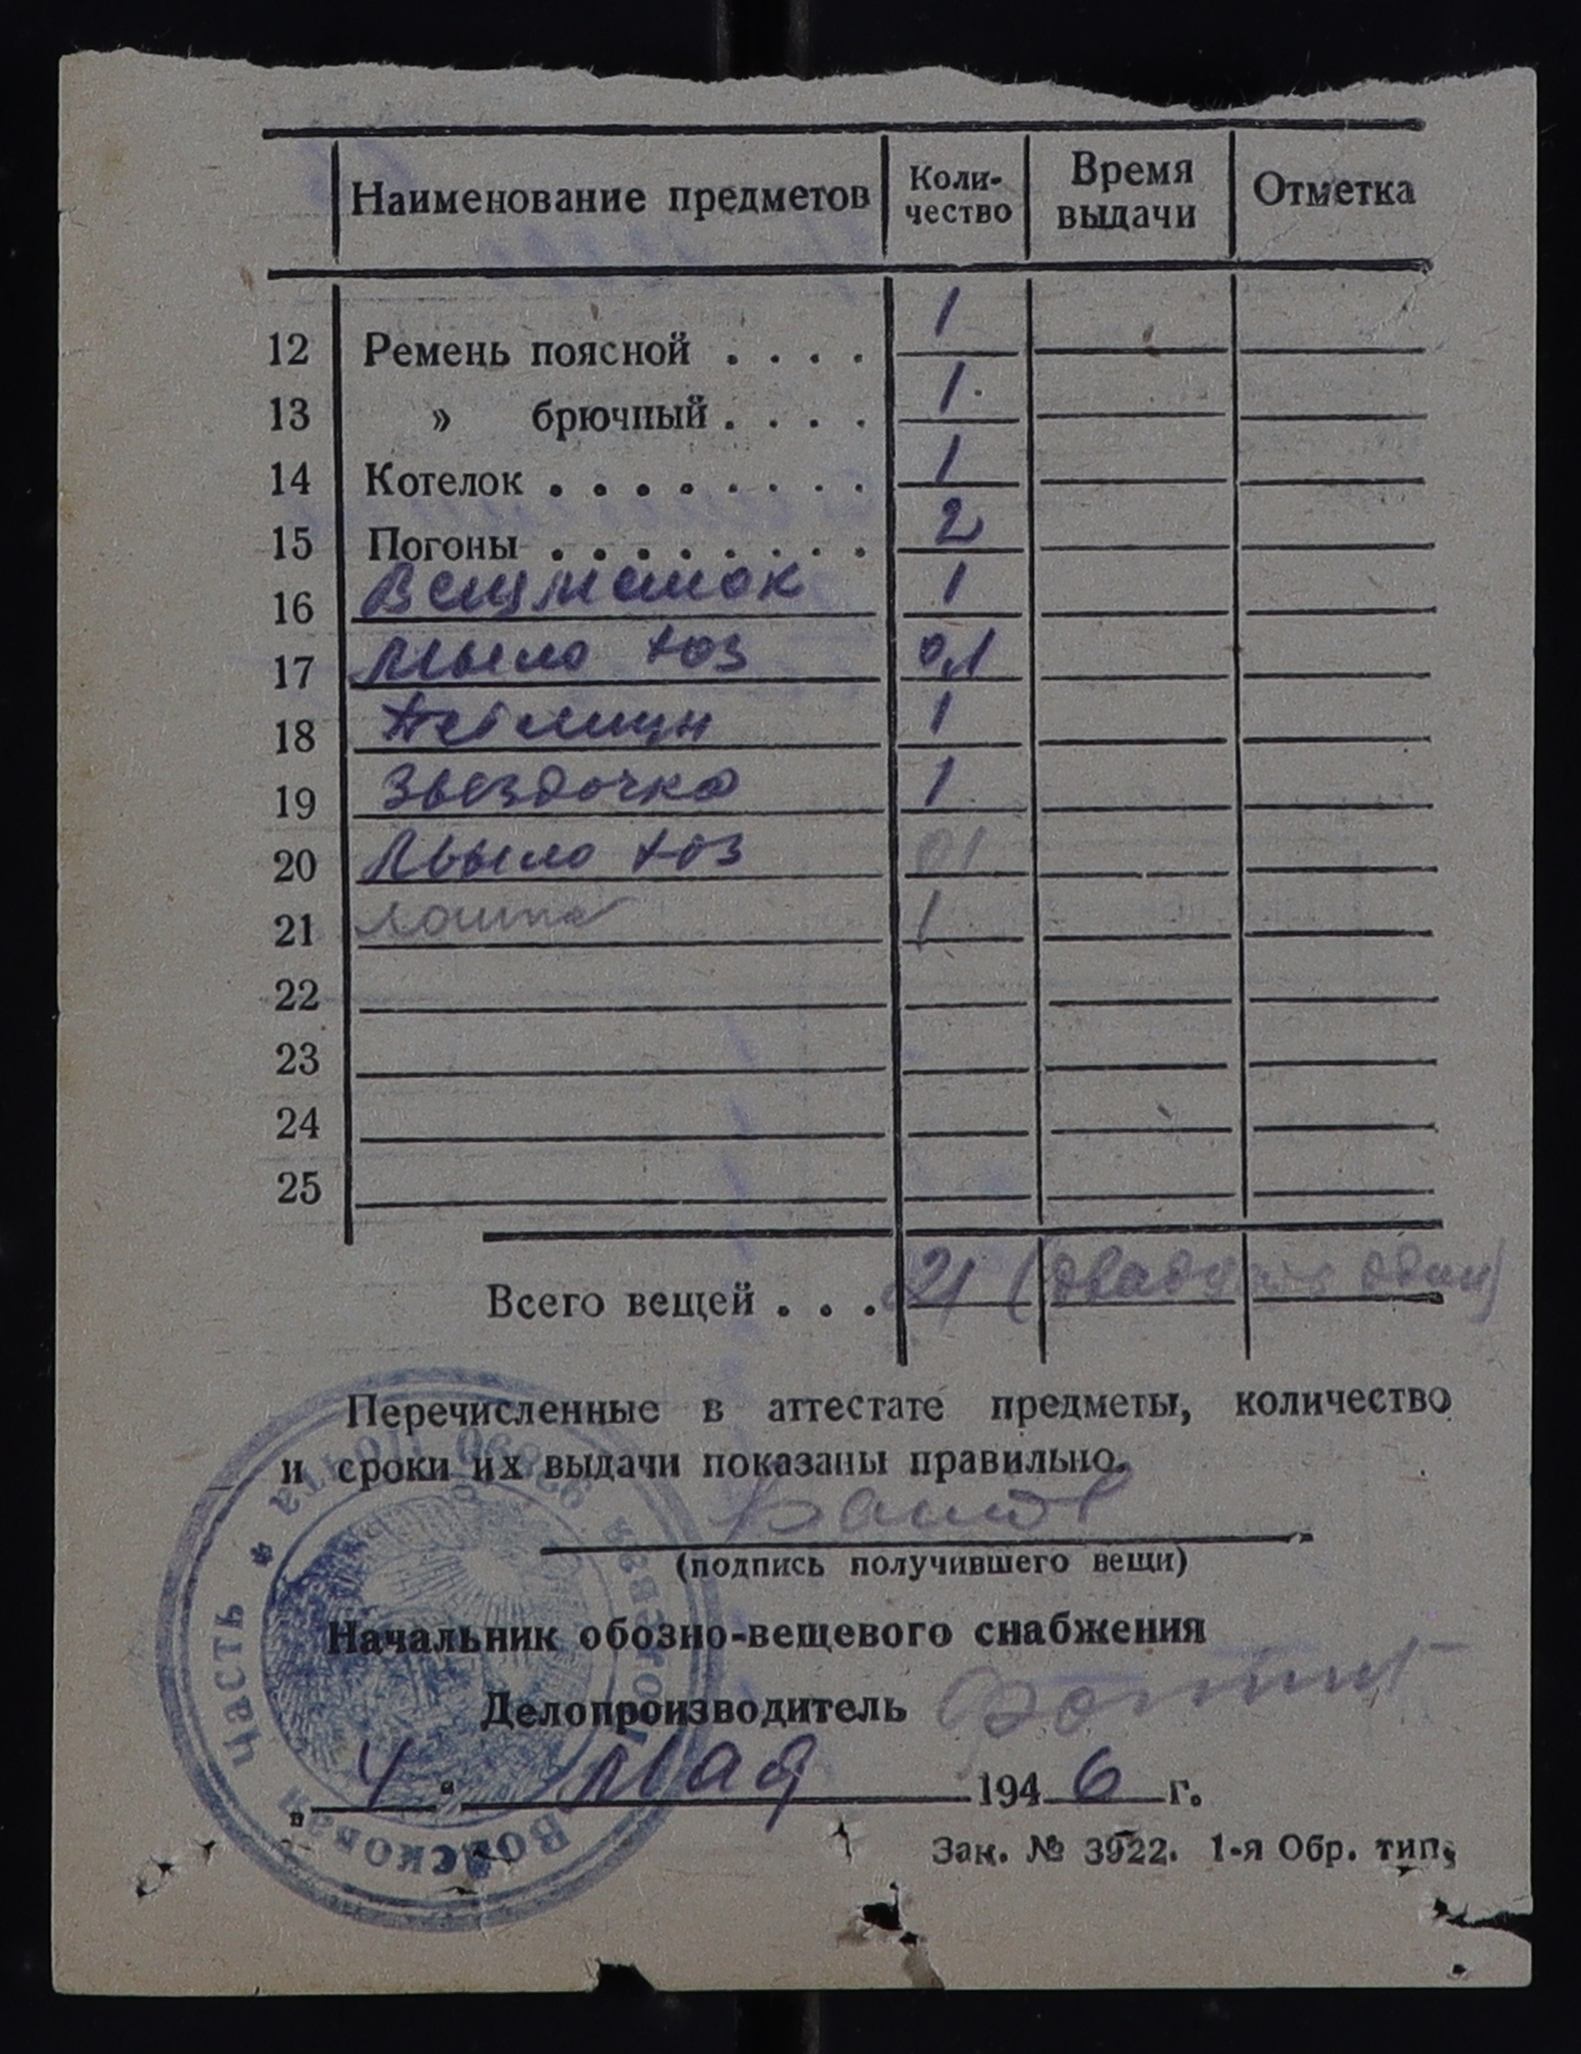 Наименование предметов Коли-чество Время выдачи Отметка
12 Ремень поясной . . . . 1
13 » брючный . . . . 1
14 Котелок . . . . . . . . . 1
15 Погоны . . . . . . . . . 2
16 Вещмешок 1
17 Мыло хоз 0,1
18 Петлиц 1
19 Звездочка 1
20 Мыло хоз 01
21 1
22
23
24
25
Всего вещей . . . 21 (двадцать один)
Перечисленные в аттестате предметы, количество
и сроки их выдачи показаны правильно.
(подпись получившего вещи)
Начальник обозно-вещевого снабжения
Делопроизводитель
„ 4 “ Мая 1946 г.
Зак. № 3922. 1-я Обр. тип.
Войсковая часть * Полевая почта